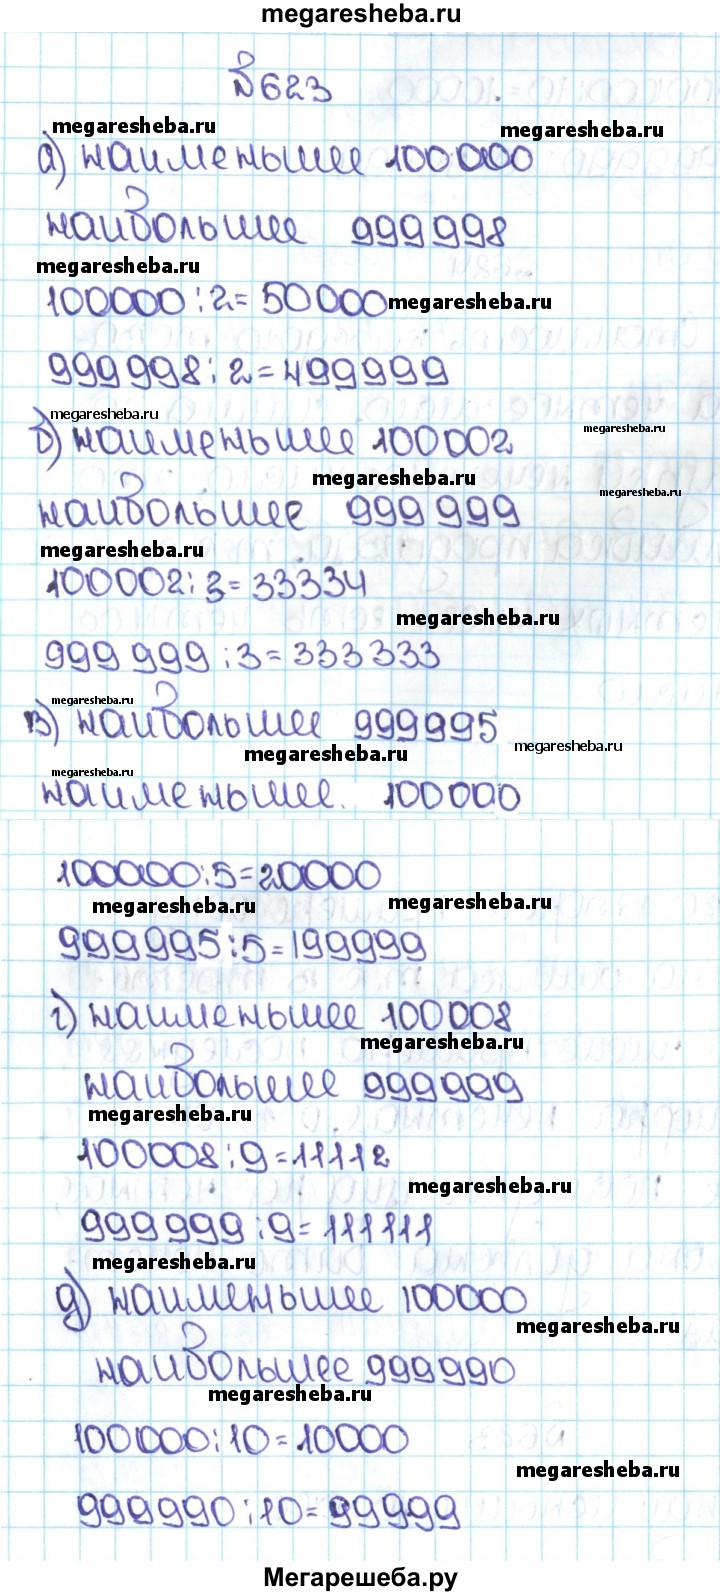 megaresheba.ru
№623
megaresheba.ru megaresheba.ru
а) наименьшее 100000
наибольшее 999998
megaresheba.ru
100000:2=50000 megaresheba.ru
999998:2=499999
megaresheba.ru
б) наименьшее 100002 megaresheba.ru
megaresheba.ru megaresheba.ru
наибольшее 999999
megaresheba.ru
100002:3=33334
megaresheba.ru
999999:3=333333
megaresheba.ru
в) наибольшее 999995
megaresheba.ru megaresheba.ru
megaresheba.ru
наименьшее. 100000
100000:5=20000
megaresheba.ru megaresheba.ru
999995:5=199999
г) наименьшее 100008
megaresheba.ru
наибольшее 999999
megaresheba.ru
100008:9=11112
megaresheba.ru
999999:9=111111
megaresheba.ru
д) наименьшее 100000
megaresheba.ru
наибольшее 999990
megaresheba.ru
100000:10=10000
megaresheba.ru
999990:10=99999
Мегарешеба.ру